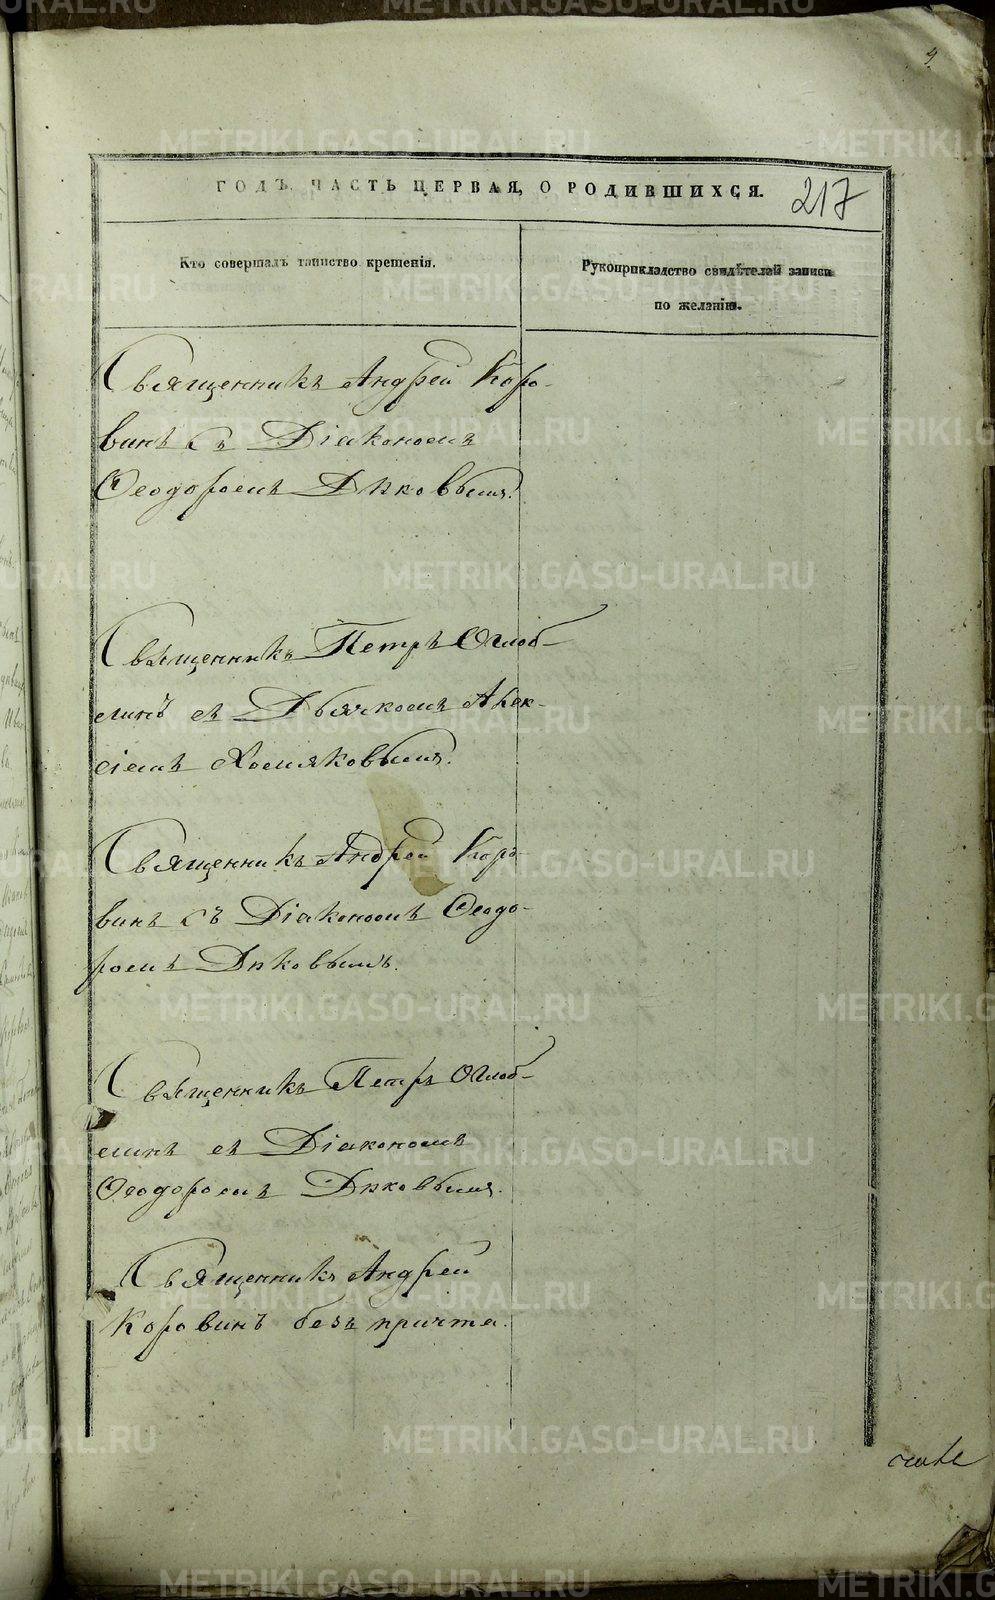 4
ГОДЪ, ЧАСТЬ ПЕРВАЯ, О РОДИВШИХСЯ.
217
Кто совершалъ таинство крещенія.
Рукоприкладство свидѣтелей записи
по желанію.
Священникъ Андрей Коро-
винъ съ Діакономъ
Ѳеодоромъ Диковымъ.
Священникъ Петръ Оглоб-
линъ съ Дьячкомъ Алек-
сіемъ Хомяковымъ.
Священникъ Андрей Коро-
винъ съ Діакономъ Ѳеодо-
ромъ Диковымъ.
Священникъ Петръ Оглоб-
линъ съ Діакономъ
Ѳеодоромъ Диковымъ.
Священникъ Андрей
Коровинъ безъ причта.
METRIKI.GASO-URAL.RU